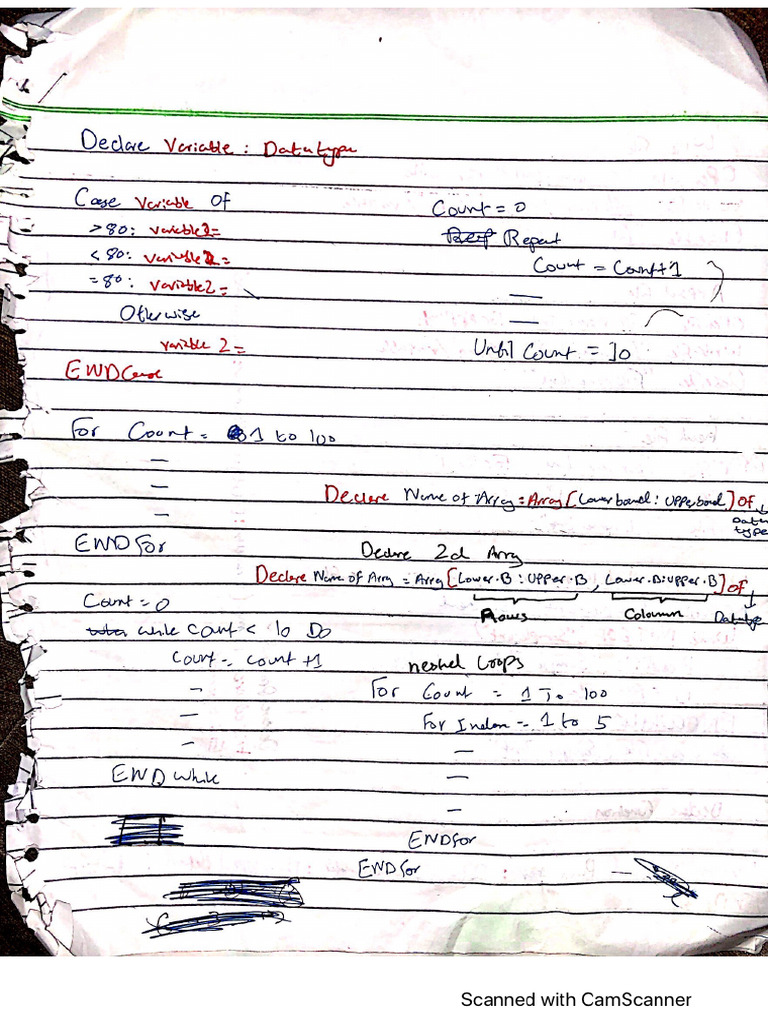 Declare Variable : Datatype
Case Variable Of
>80: Variable2=
<80: Variable2=
=80: Variable2=
Otherwise
variable 2=
ENDCase
Count = 0
Repeat
Count = Count+1
Until Count = 10
For Count = 1 to 100
ENDFor
Declare Name of Array = Array [Lowerbound : Upperbound] Of
Data type
Declare 2d Array
Declare Name of Array = Array [Lower.B : Upper.B , Lower.B : Upper.B] of
Rows Coloumn Datatype
Count = 0
while Count < 10 Do
Count = count +1
END while
nested Loops
For Count = 1 To 100
For Index = 1 to 5
ENDfor
ENDfor
Scanned with CamScanner